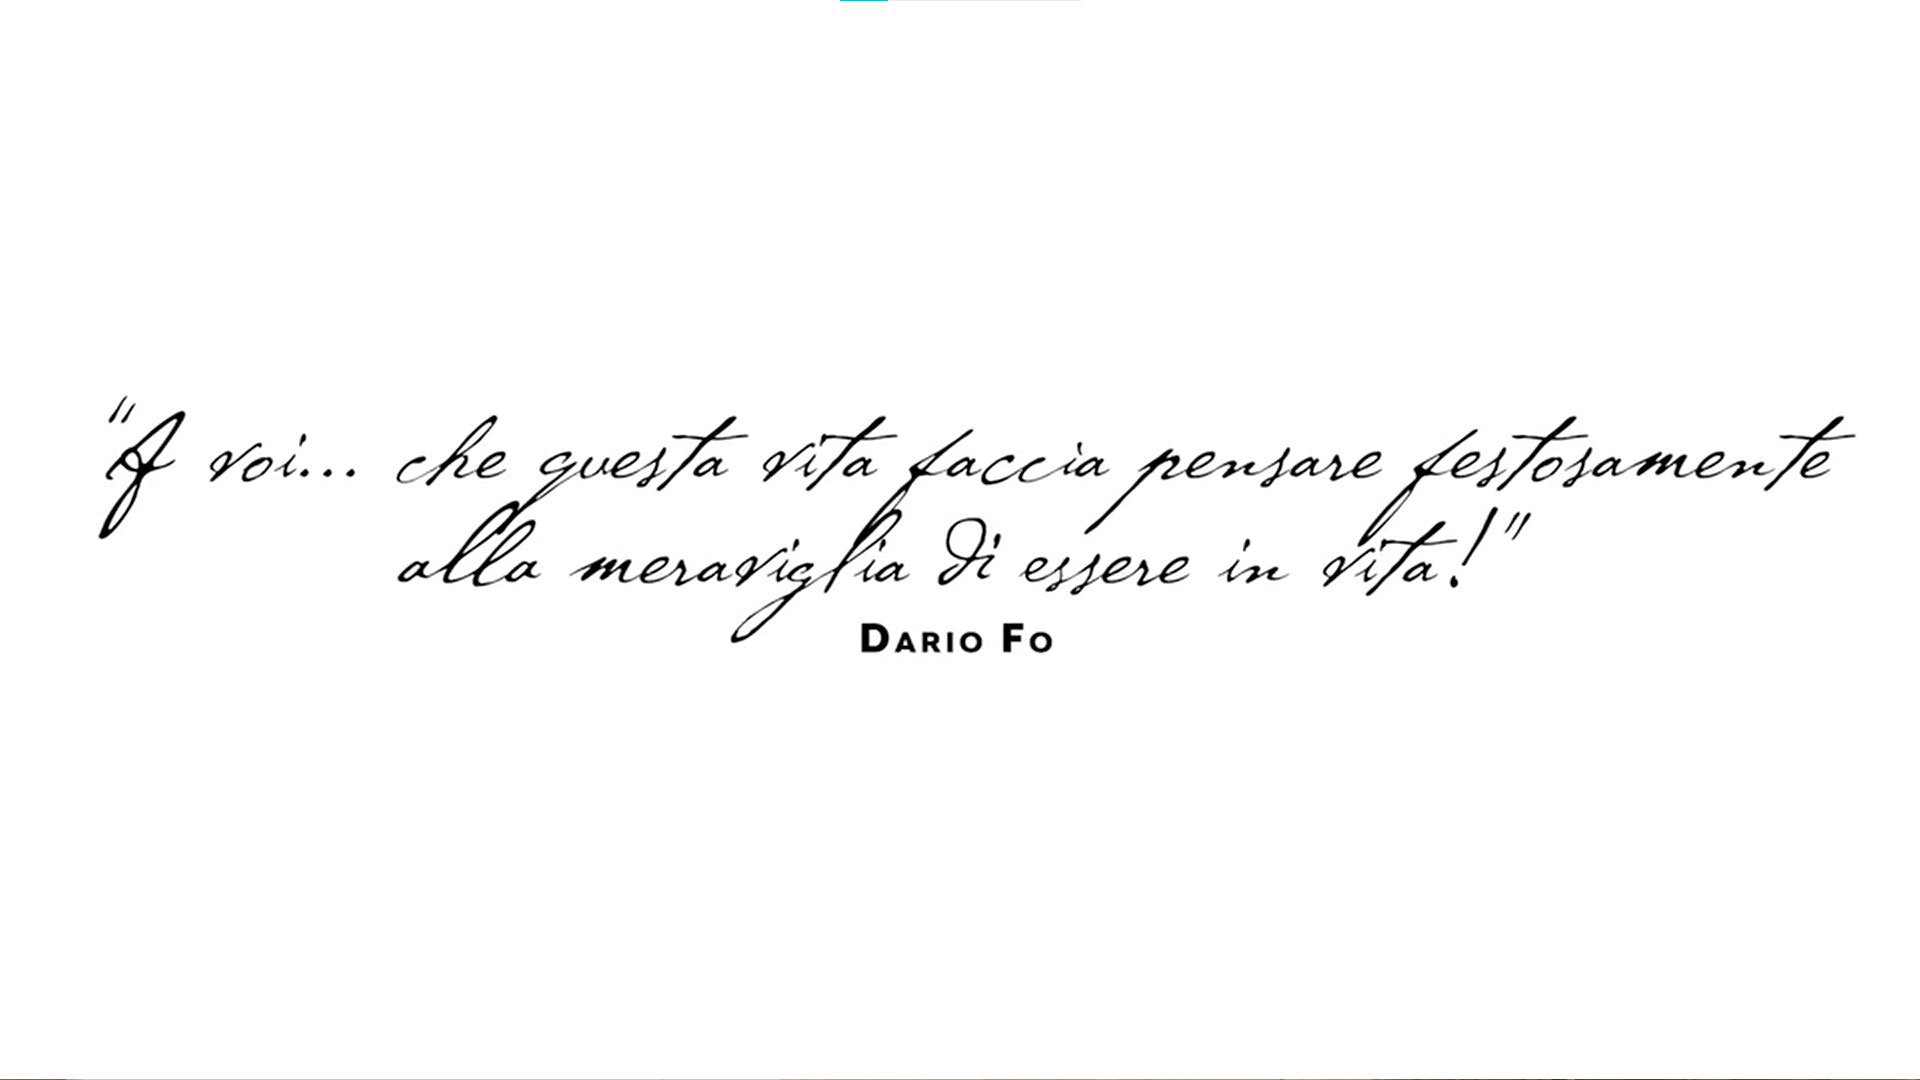 "A voi... che questa vita faccia pensare festosamente
alla meraviglia di essere in vita!"
DARIO FO